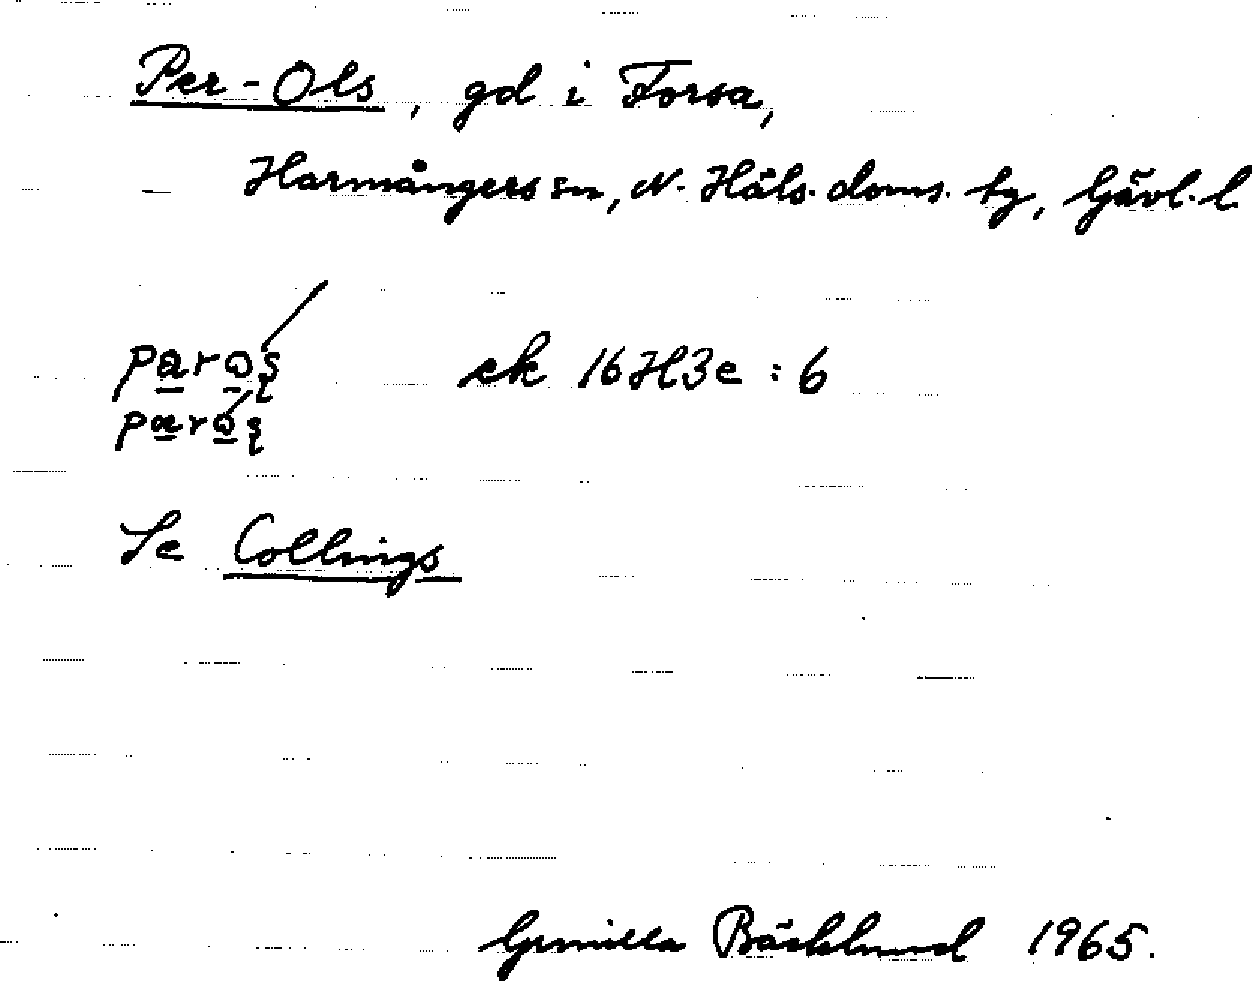 Per-Ols, gd i Forsa,
Harmångers sn, N. Häls. doms. tg, Gävl. l.
ek 16H3e : 6
Se Collings
Gunilla Bäcklund 1965.